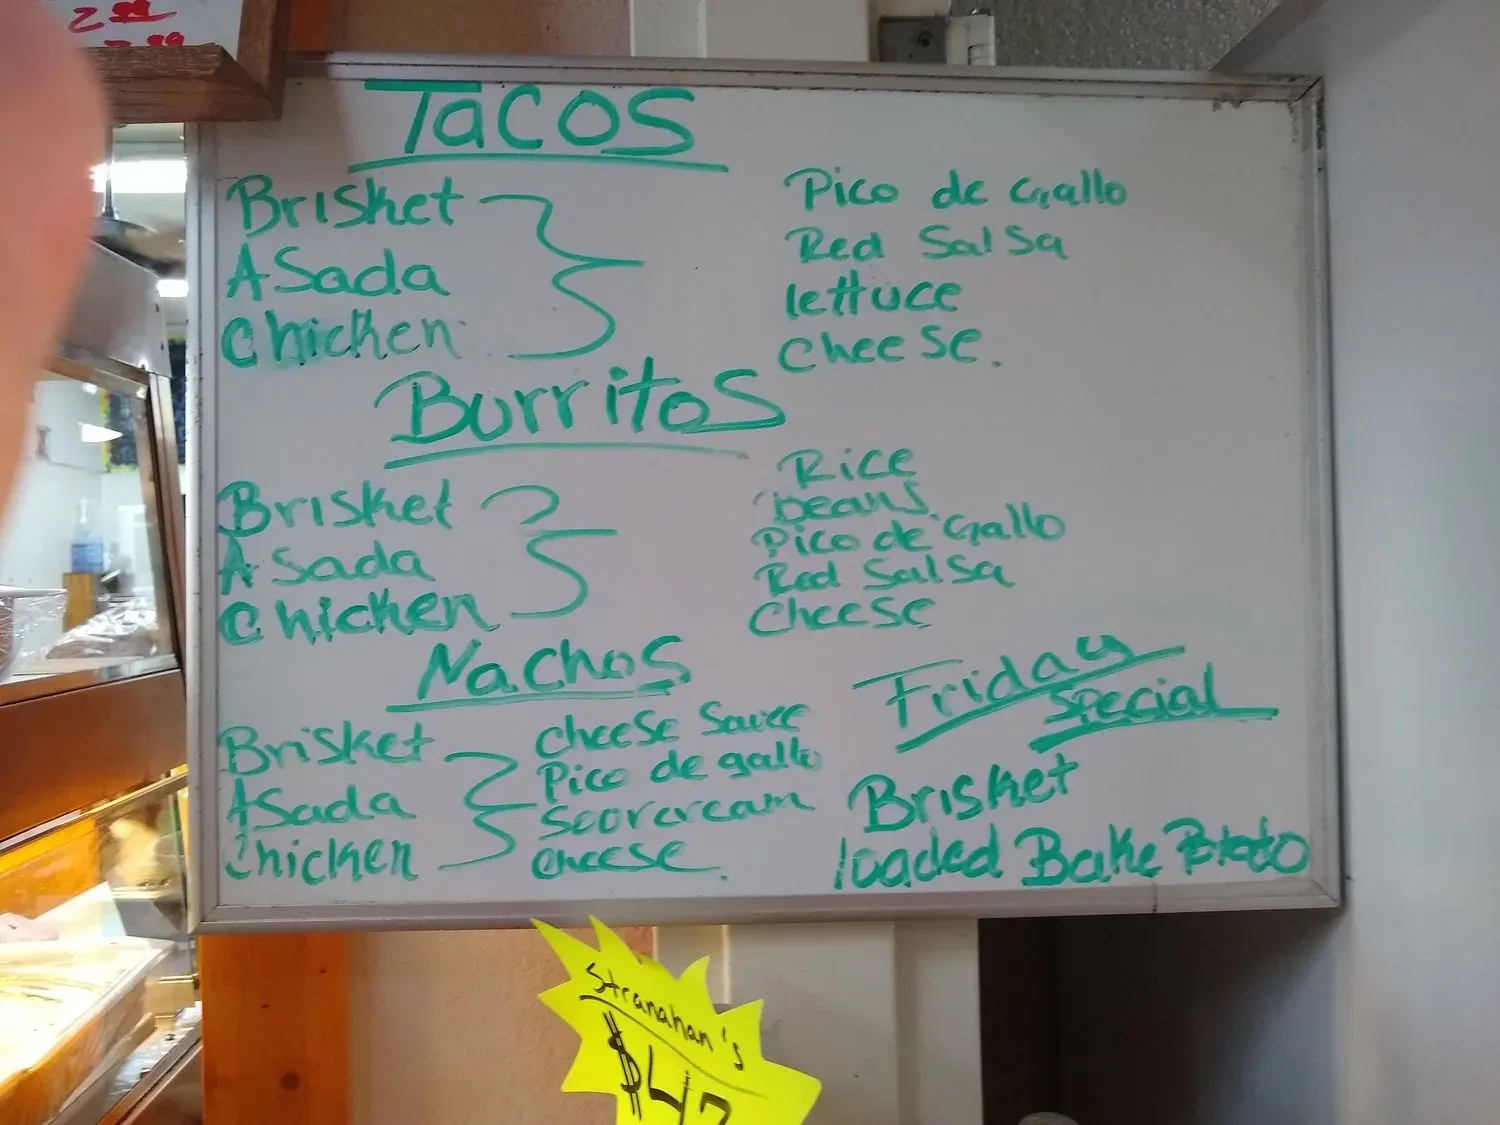 2
Tacos
Brisket
Asada
Chicken
Pico de Gallo
Red Salsa
lettuce
cheese.
Burritos
Brisket
Asada
Chicken
Rice
beans
Pico de Gallo
Red Salsa
Cheese
Nachos
Brisket
Asada
Chicken
cheese sauce
Pico de gallo
Soorcream
cheese.
Friday
Special
Brisket
loaded Bake Potato
Stranahan's
$42